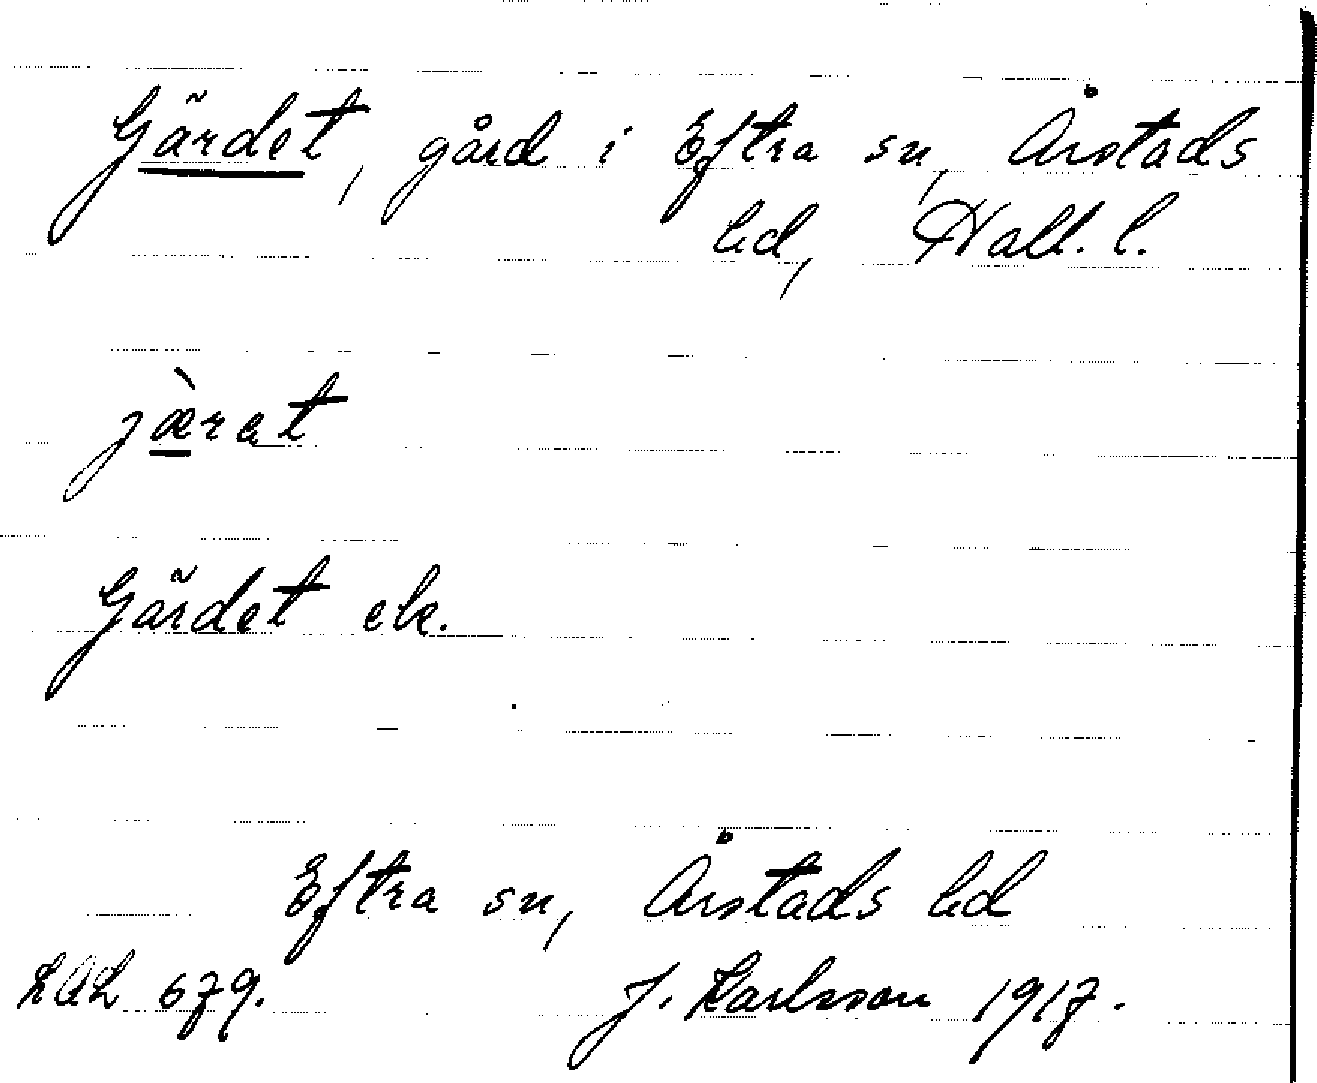 Gärdet, gård i Eftra sn, Årstads
hd, Hall. l.
jæ̀rat
Gärdet ek.
Eftra sn, Årstads hd
LAL 679.
J. Karlsson 1917.